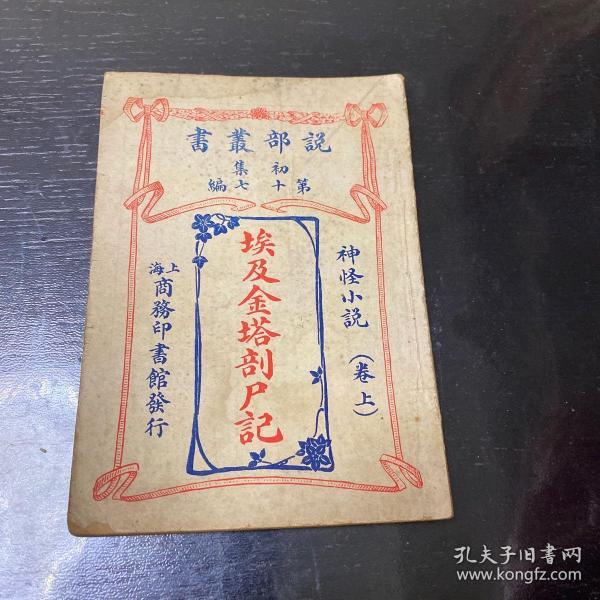 説部叢書
初集
第十七編
神怪小説
（卷上）
埃及金塔剖尸記
上海
商務印書館發行
孔夫子旧書网
www.kongfz.com